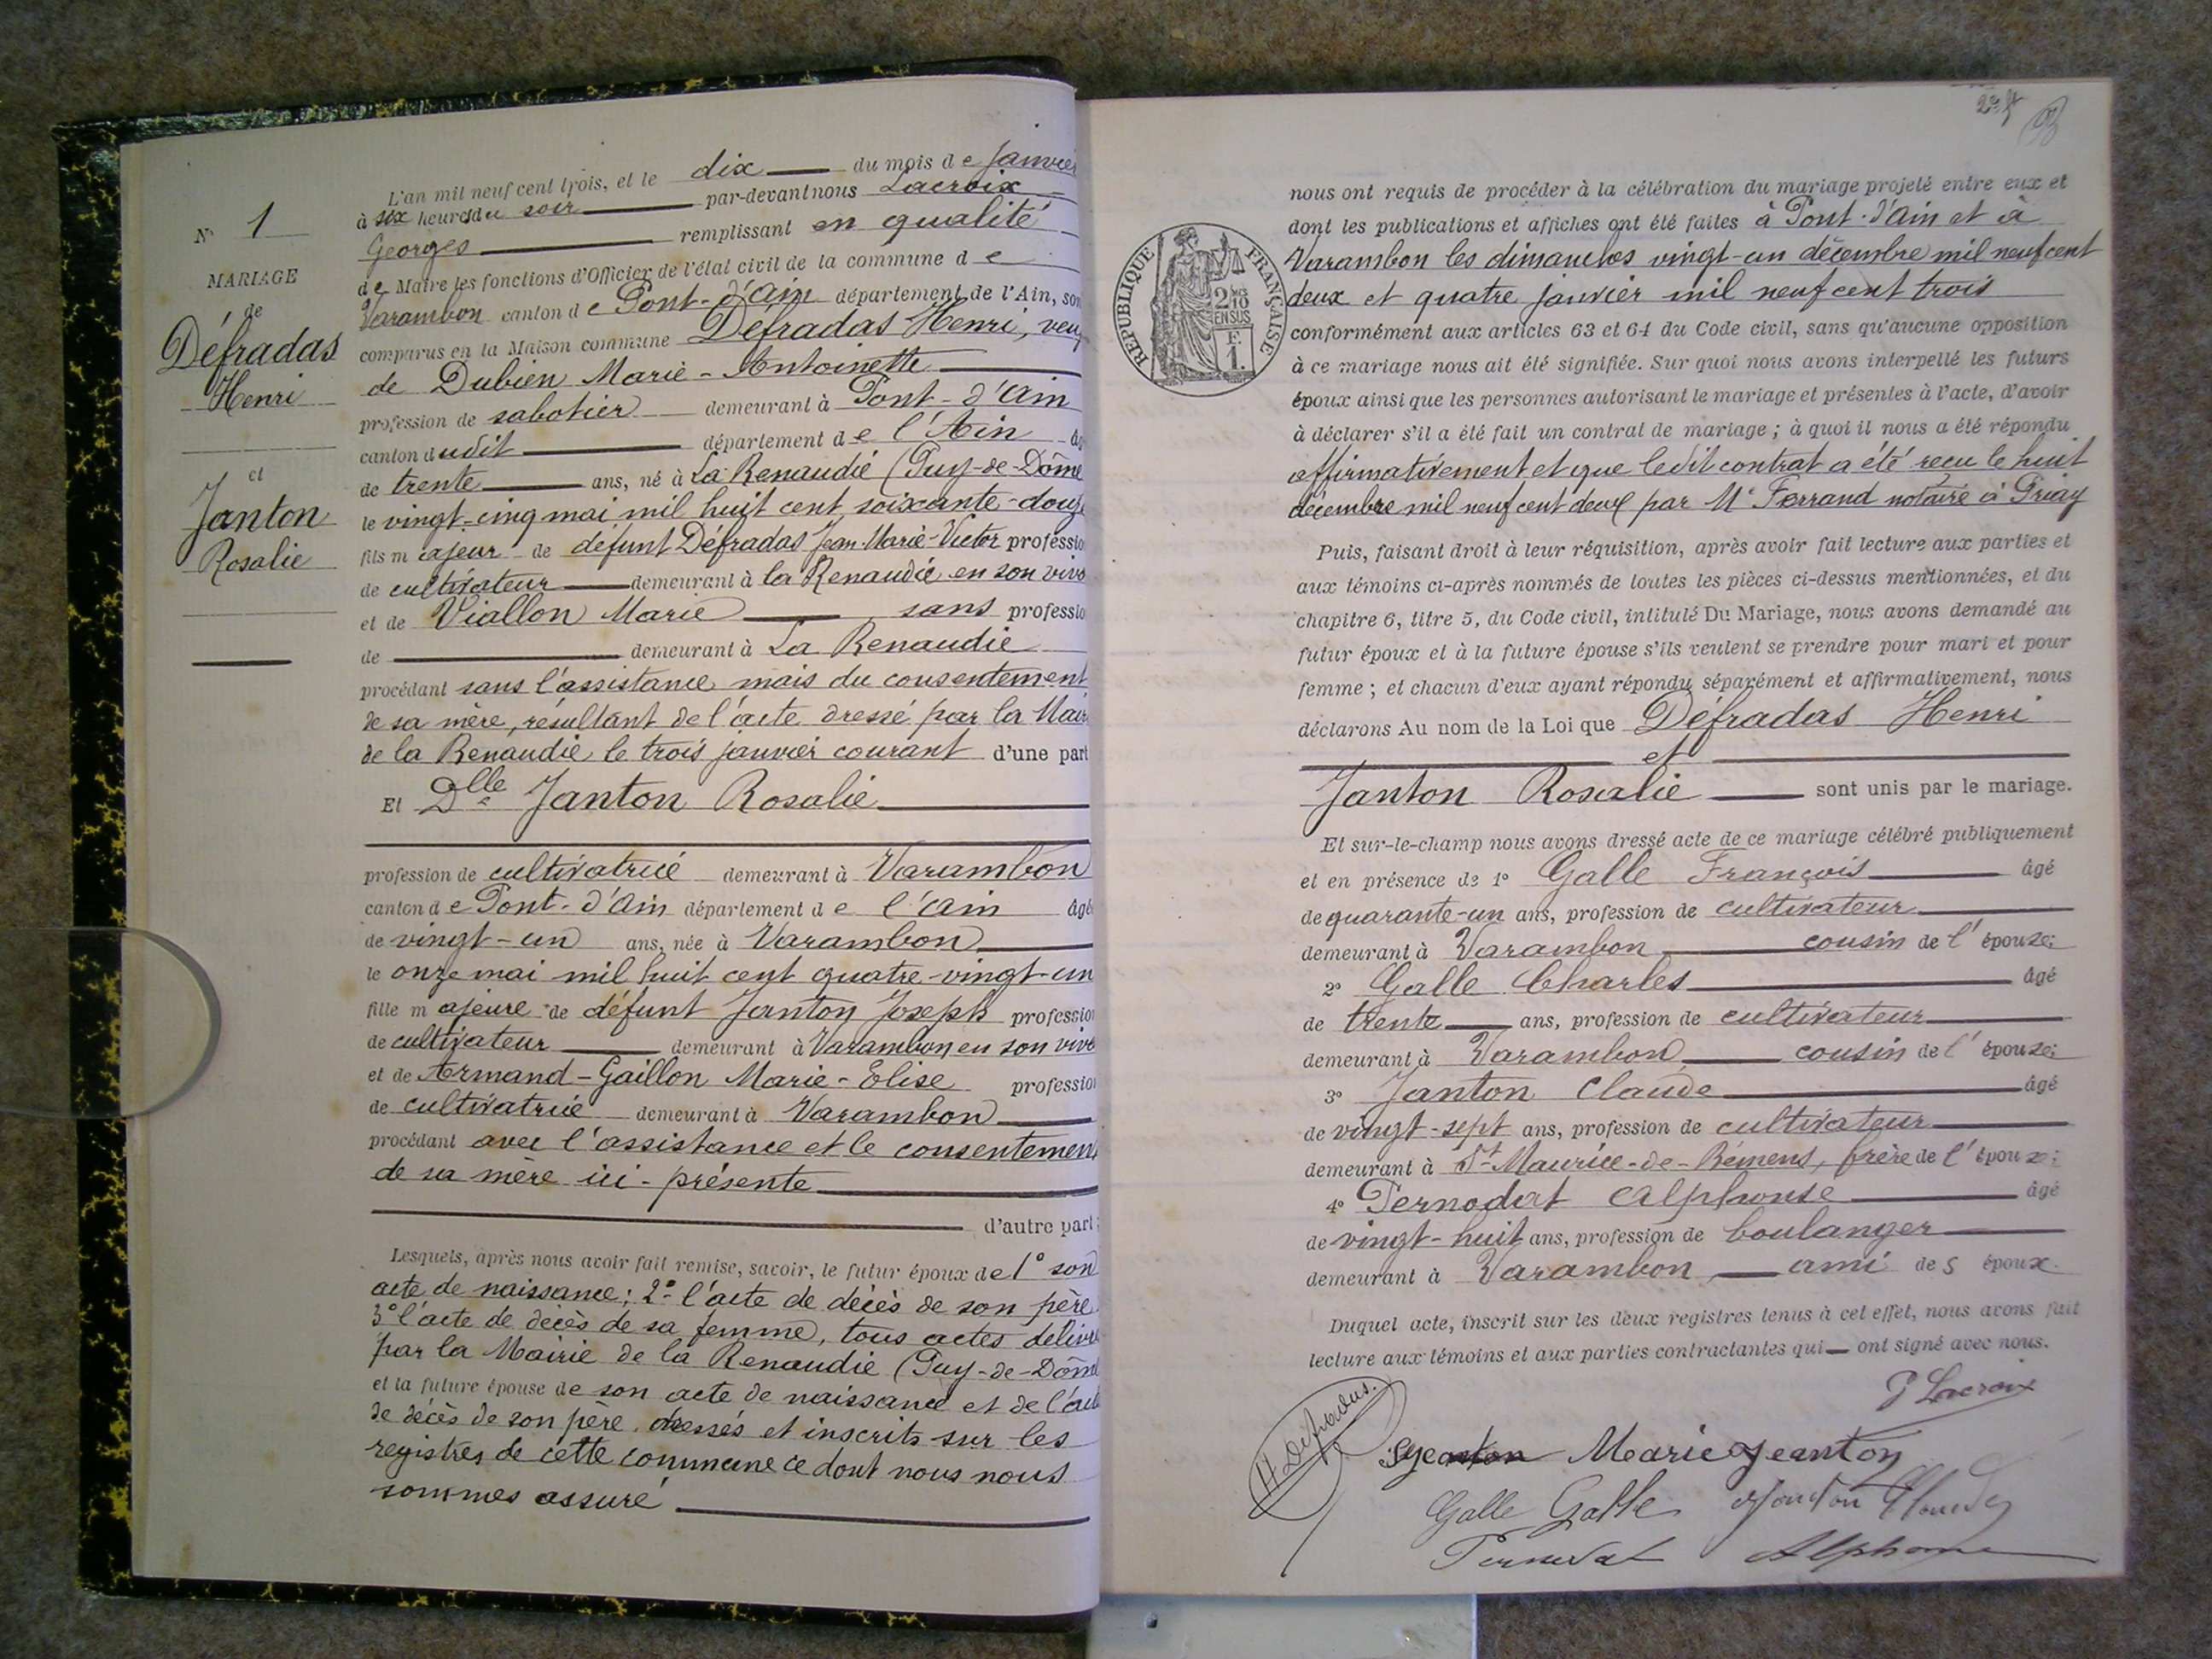 N° 1
MARIAGE
de
Défradas
Henri
et
Janton
Rosalie
L'an mil neuf cent trois, et le dix du mois de Janvier
à six heures du soir par-devant nous Lacroix
Georges remplissant en qualité
de Maire les fonctions d'Officier de l'état civil de la commune de
Varambon canton de Pont-d'Ain département de l'Ain, son
comparus en la Maison commune Défradas Henri, veuf
de Dubien Marie-Antoinette
profession de sabotier demeurant à Pont-d'Ain
canton dudit département de l'Ain âg
de trente ans, né à La Renaudie (Puy-de-Dôme
le vingt-cinq mai mil huit cent soixante-douze
fils majeur de défunt Défradas Jean-Marie-Victor professio
de cultivateur demeurant à la Renaudie en son viva
et de Viallon Marie sans professio
de demeurant à La Renaudie
procédant sans l'assistance mais du consentement
de sa mère, résultant de l'acte dressé par la Mair
de la Renaudie le trois janvier courant d'une part
Et Dlle Janton Rosalie
profession de cultivatrice demeurant à Varambon
canton de Pont-d'Ain département de l'Ain âgé
de vingt-un ans, née à Varambon
le onze mai mil huit cent quatre-vingt-un
fille majeure de défunt Janton Joseph profession
de cultivateur demeurant à Varambon en son viva
et de Armand-Gaillon Marie-Elise profession
de cultivatrice demeurant à Varambon
procédant avec l'assistance et le consentement
de sa mère ici-présente
d'autre part;
Lesquels, après nous avoir fait remise, savoir, le futur époux de 1° son
acte de naissance; 2° l'acte de décès de son père
3° l'acte de décès de sa femme, tous actes délivré
par la Mairie de la Renaudie (Puy-de-Dôme
et la future épouse de son acte de naissance et de l'acte
de décès de son père dressés et inscrits sur les
registres de cette commune ce dont nous nous
sommes assuré
RÉPUBLIQUE FRANÇAISE
2/10 EN SUS
F. 1.
nous ont requis de procéder à la célébration du mariage projeté entre eux et
dont les publications et affiches ont été faites à Pont-d'Ain et à
Varambon les dimanches vingt-un décembre mil neuf cent
deux et quatre janvier mil neuf cent trois
conformément aux articles 63 et 64 du Code civil, sans qu'aucune opposition
à ce mariage nous ait été signifiée. Sur quoi nous avons interpellé les futurs
époux ainsi que les personnes autorisant le mariage et présentes à l'acte, d'avoir
à déclarer s'il a été fait un contrat de mariage; à quoi il nous a été répondu
affirmativement et que ledit contrat a été reçu le huit
décembre mil neuf cent deux par Me Ferrand notaire à Priay
Puis, faisant droit à leur réquisition, après avoir fait lecture aux parties et
aux témoins ci-après nommés de toutes les pièces ci-dessus mentionnées, et du
chapitre 6, titre 5, du Code civil, intitulé Du Mariage, nous avons demandé au
futur époux et à la future épouse s'ils veulent se prendre pour mari et pour
femme; et chacun d'eux ayant répondu séparément et affirmativement, nous
déclarons Au nom de la Loi que Défradas Henri
et
Janton Rosalie sont unis par le mariage.
Et sur-le-champ nous avons dressé acte de ce mariage célébré publiquement
et en présence de 1° Galle François âgé
de quarante-un ans, profession de cultivateur
demeurant à Varambon cousin de l'épouse;
2° Galle Charles âgé
de trente ans, profession de cultivateur
demeurant à Varambon cousin de l'épouse;
3° Janton Claude âgé
de vingt-sept ans, profession de cultivateur
demeurant à St-Maurice-de-Rémens, frère de l'épouse;
4° Pernodat Alphonse âgé
de vingt-huit ans, profession de boulanger
demeurant à Varambon, ami des époux.
Duquel acte, inscrit sur les deux registres tenus à cet effet, nous avons fait
lecture aux témoins et aux parties contractantes qui ont signé avec nous.
G Lacroix
H. Defradas.
Marie Jeanton
Galle Galle Janton Claude
Pernodat Alphonse